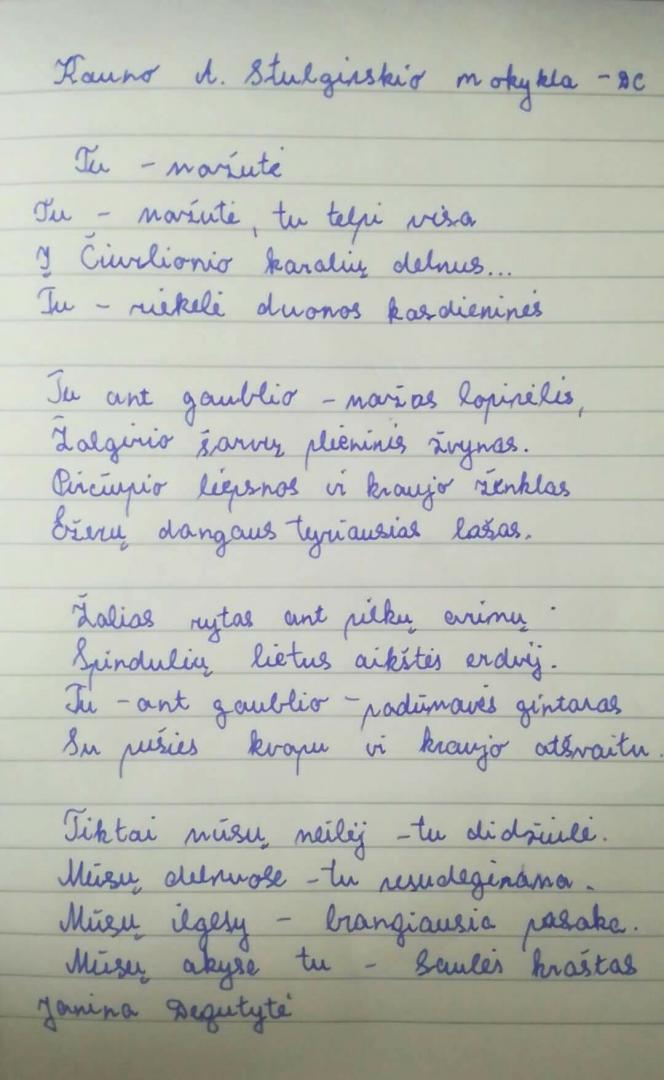 Kauno A. Stulginskio mokykla - DC
Tu - mažutė
Tu - mažutė, tu telpi visa
Į Čiurlionio karalių delnus...
Tu - riekelė duonos kasdieninės
Tu ant gaublio - mažas lopinėlis,
Žalgirio šarvų plieninis žvynas.
Pirčiupio liepsnos ir kraujo ženklas
Ežerų dangaus tyriausias lašas.
Žalias rytas ant pilkų arimų
Spindulių lietus aikštės erdvėj.
Tu - ant gaublio - padūmavęs gintaras
Su pušies kvapu ir kraujo atšvaitu.
Tiktai mūsų meilėj - tu didžiulė.
Mūsų delnuose - tu nesudeginama.
Mūsų ilgesy - brangiausia pasaka.
Mūsų akyse tu - Saulės kraštas
Janina Degutytė